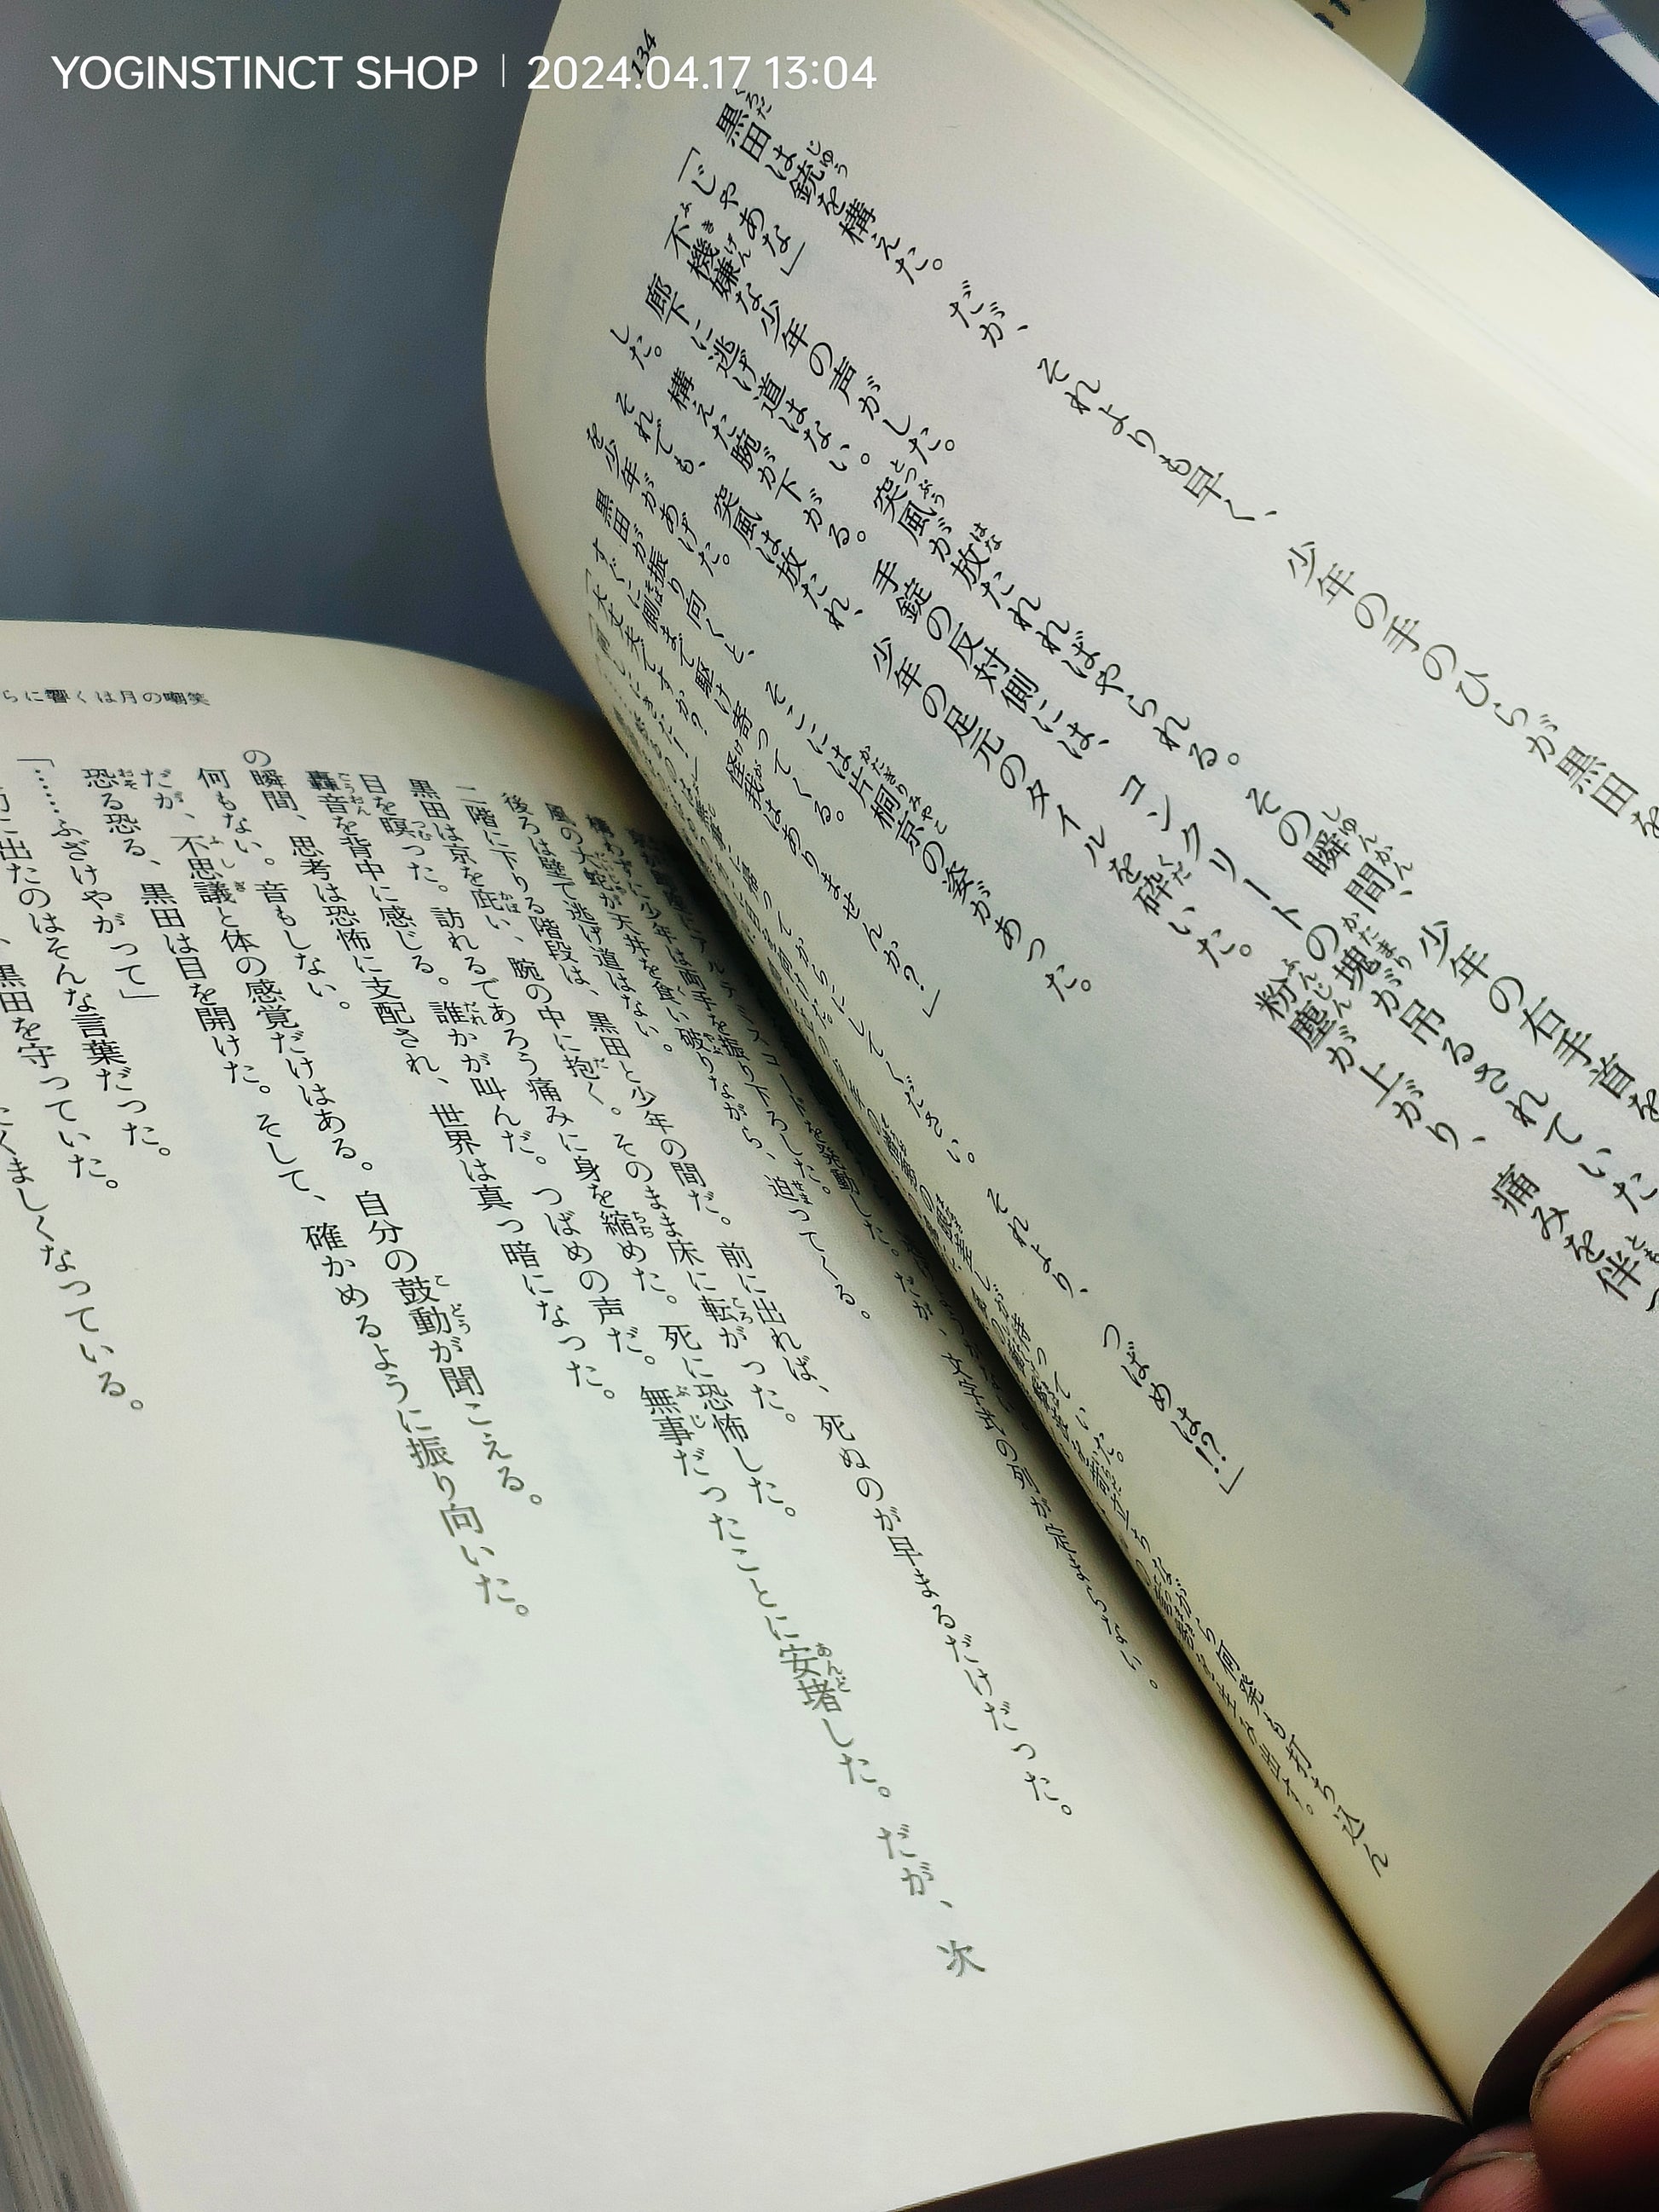 YOGINSTINCT SHOP | 2024.04.17 13:04
134
黒田は銃を構えた。だが、それよりも早く、少年の手のひらが黒田を
「じゃあな」
不機嫌な少年の声がした。
廊下に逃げ道はない。突風が放たれればやられる。その瞬間、少年の右手首を
した。構えた腕が下がる。手錠の反対側には、コンクリートの塊が吊るされていた
それでも、突風は放たれ、少年の足元のタイルを砕いた。粉塵が上がり、痛みを伴っ
を少年があげた。
黒田が振り向くと、そこには片桐京の姿があった。
すぐに側まで駆け寄ってくる。
「大丈夫ですか? 怪我はありませんか?」
それより、つばめは!?」
らに響くは月の嘲笑
だが、文字式の列が定まらない。
構わずに少年は両手を振り下ろした。
風の大蛇が天井を食い破りながら、迫ってくる。
後ろは壁で逃げ道はない。
二階に下りる階段は、黒田と少年の間だ。前に出れば、死ぬのが早まるだけだった。
黒田は京を庇い、腕の中に抱く。そのまま床に転がった。
目を瞑った。訪れるであろう痛みに身を縮めた。死に恐怖した。
轟音を背中に感じる。誰かが叫んだ。つばめの声だ。無事だったことに安堵した。だが、次
の瞬間、思考は恐怖に支配され、世界は真っ暗になった。
何もない。音もしない。
だが、不思議と体の感覚だけはある。自分の鼓動が聞こえる。
恐る恐る、黒田は目を開けた。そして、確かめるように振り向いた。
「……ふざけやがって」
に出たのはそんな言葉だった。
、黒田を守っていた。
くましくなっている。